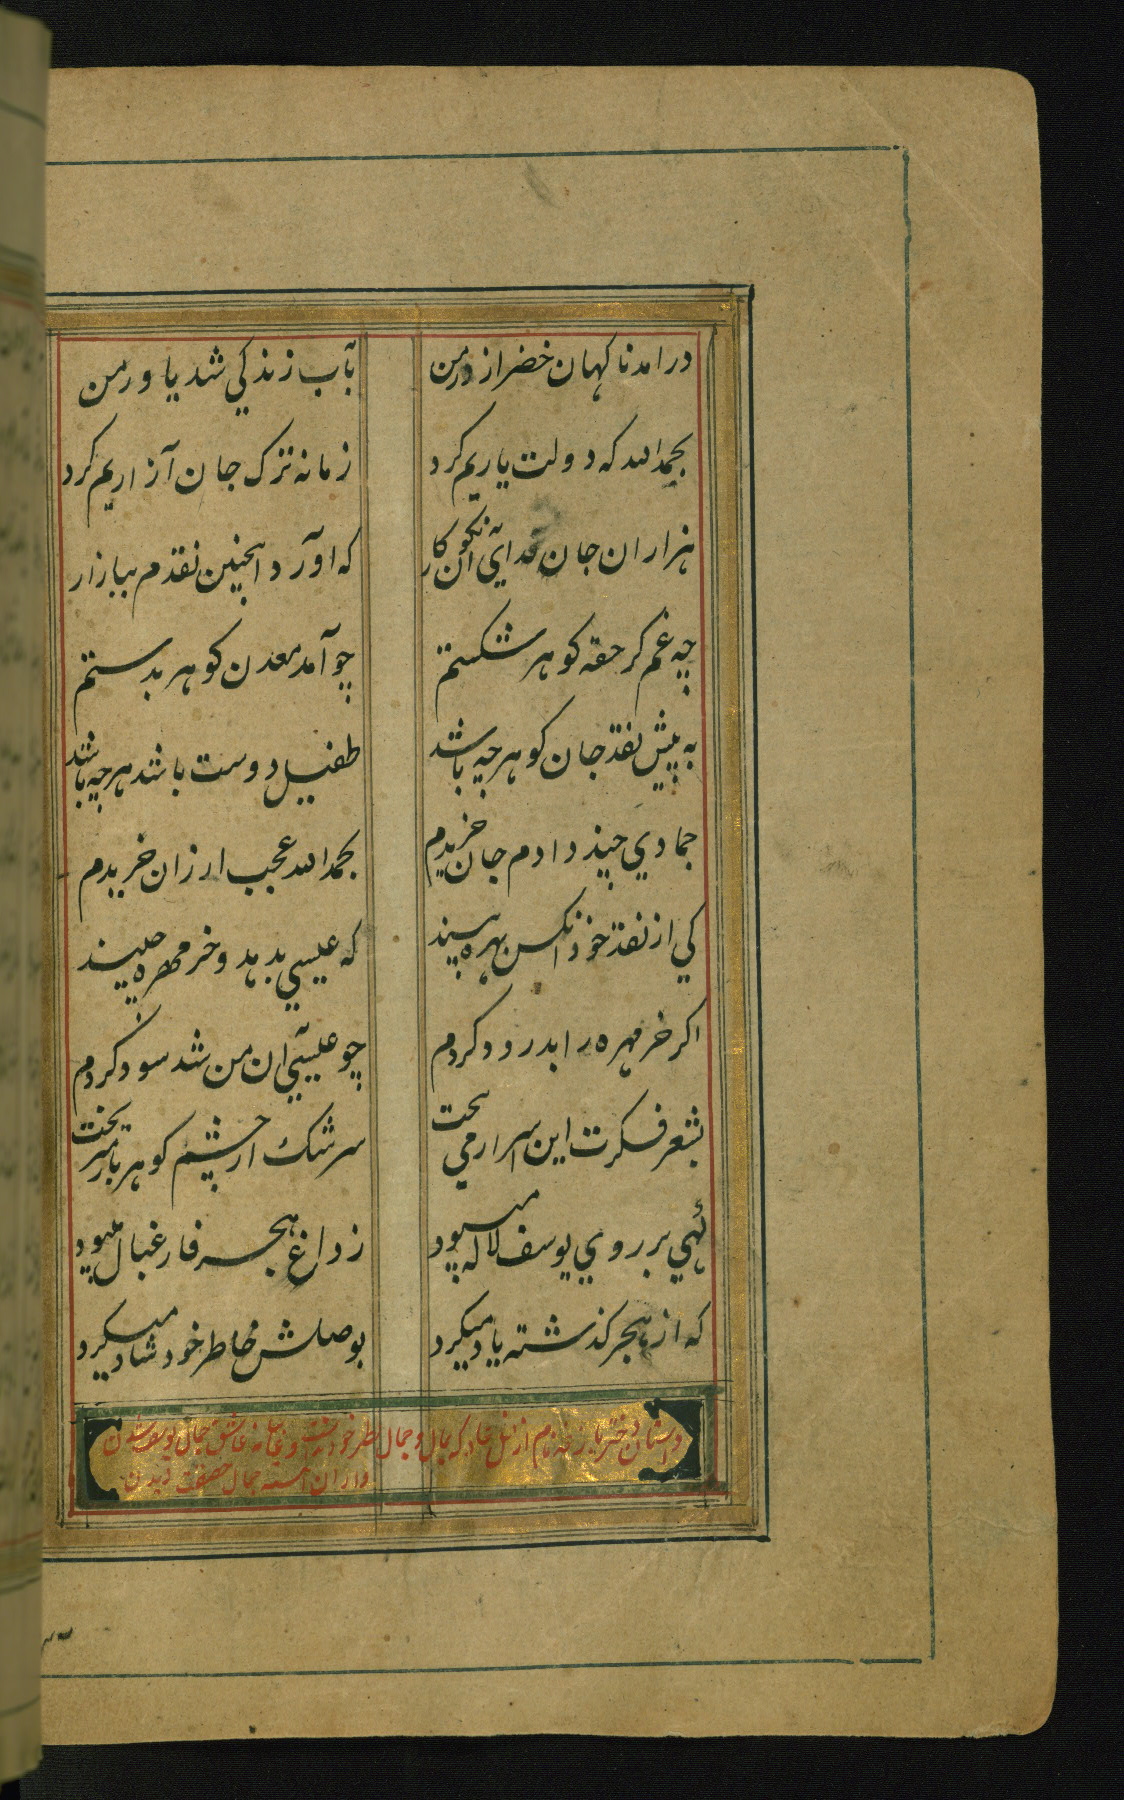 درامد ناکهان خضر از در من
بآب زندکي شد یاور من
بحمدالله که دولت یاریم کرد
زمانه ترک جان آزاریم کرد
هزاران جان فدای آن نکون کار
که اورد اینچنین نقدم ببازار
چه غم کر حقه کوهر شکستم
چو آمد معدن کوهر بدستم
به پیش نقد جان کوهر چه باشد
طفیل دوست باشد هرچه باشد
جمادي چند دادم جان خریدم
بحمدالله عجب ارزان خریدم
کي از نقد خود انکس بهره بیند
که عیسي بدهد و خر مهره چیند
اکر خر مهره را بدرود کردم
چو عیسي آن من شد سود کردم
بشعر فکرت این اسرار می بیخت
سرشک از چشم کوهربار میریخت
کهي بر روي یوسف لاله میبود
ز داغ هجر فارغبال میبود
که از هجر کذشته یاد میکرد
بوصلش خاطر خود شاد میکرد
داستان دختر بازغه نام از نسل عاد که بمال و جمال نظیر خود نداشت و غایبانه عاشق جمال یوسف شدن
و در ان آینه جمال حقیقت دیدن